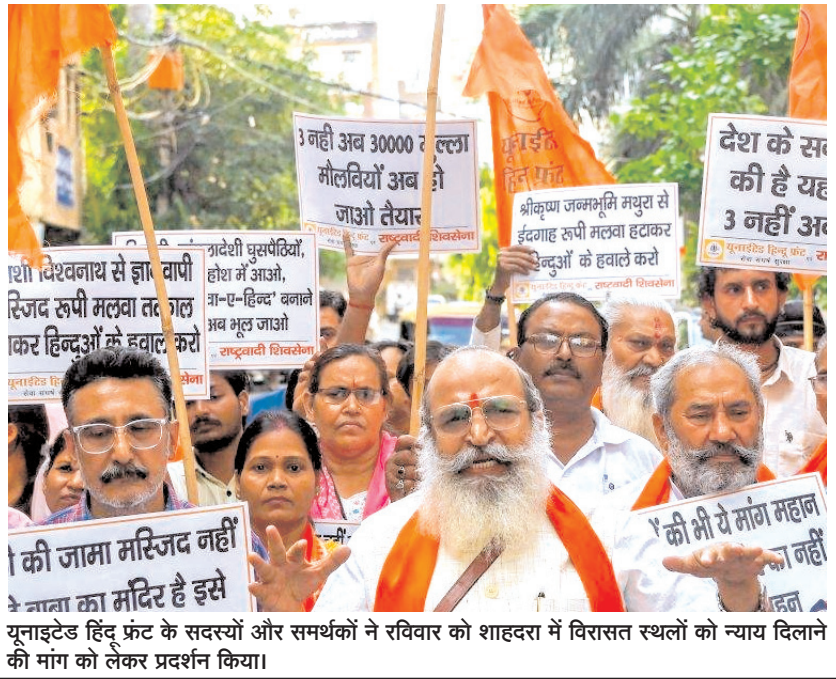 3 नही अब 30000
मौलवियों अब हो
जाओ तैयार
यूनाईटेड हिन्दू फ्रंट राष्ट्रवादी शिवसेना
यूनाईटेड
हिन्दू फ्रंट
श्रीकृष्ण जन्मभूमि मथुरा से
ईदगाह रूपी मलवा हटाकर
हिन्दुओं के हवाले करो
देश के
की है यह
3 नहीं
यूनाईटेड हिन्दू फ्रंट
घुसपेठियों,
होश में आओ,
बनाने
अब भूल जाओ
राष्ट्रवादी शिवसेना
विश्वनाथ से ज्ञानवापी
रूपी मलवा तत्काल
हिन्दूओं के हवाले करो
यूनाईटेड
की जामा मस्जिद नहीं
बाबा का मंदिर है इसे
की भी ये मांग महान
नहीं
यूनाइटेड हिंदू फ्रंट के सदस्यों और समर्थकों ने रविवार को शाहदरा में विरासत स्थलों को न्याय दिलाने
की मांग को लेकर प्रदर्शन किया।